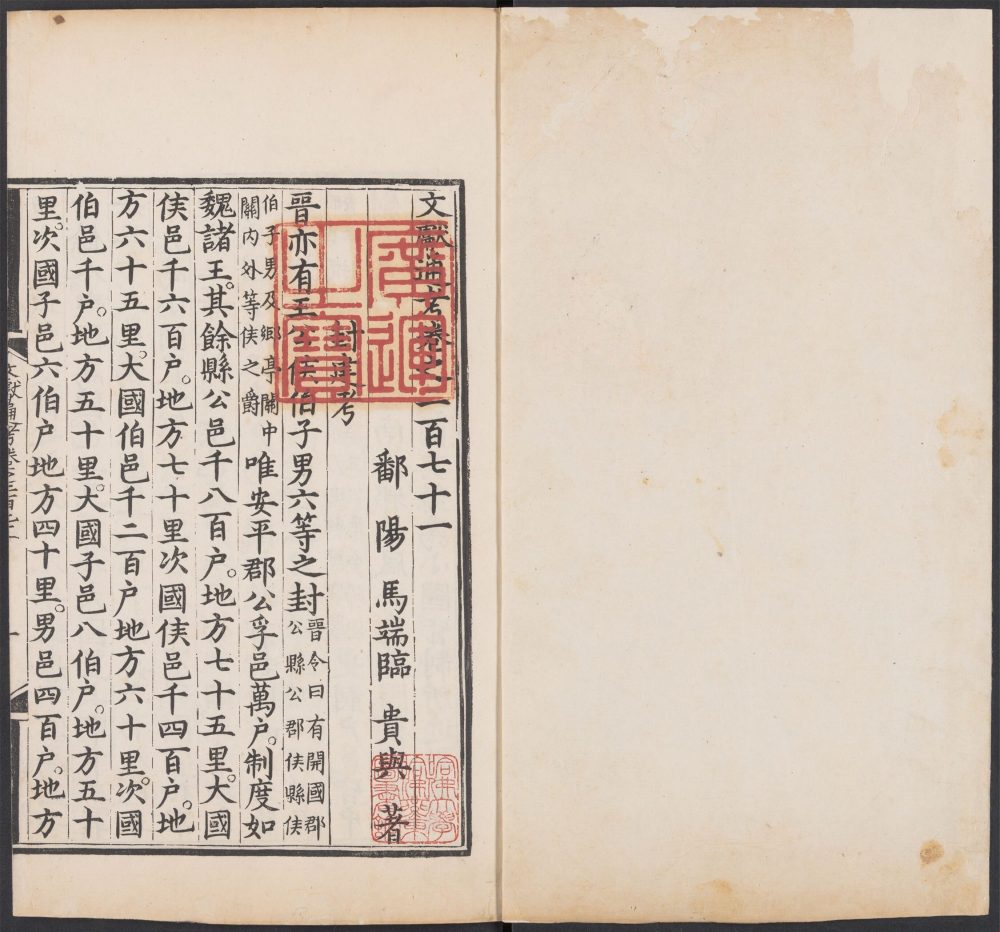 文獻通考卷之二百七十一
鄱陽馬端臨貴與著
封建考
晉亦有王公侯伯子男六等之封
晉令曰有開國郡
公縣公郡侯縣侯
伯子男及鄉亭關中
關内外等侯之爵
唯安平郡公孚邑萬户。制度如
魏諸王。其餘縣公邑千八百户。地方七十五里。大國
侯邑千六百户。地方七十里次國侯邑千四百户。地
方六十五里。大國伯邑千二百户地方六十里。次國
伯邑千户。地方五十里。大國子邑八伯户。地方五十
里。次國子邑六伯户地方四十里。男邑四百户。地方
一
廣運
之寶